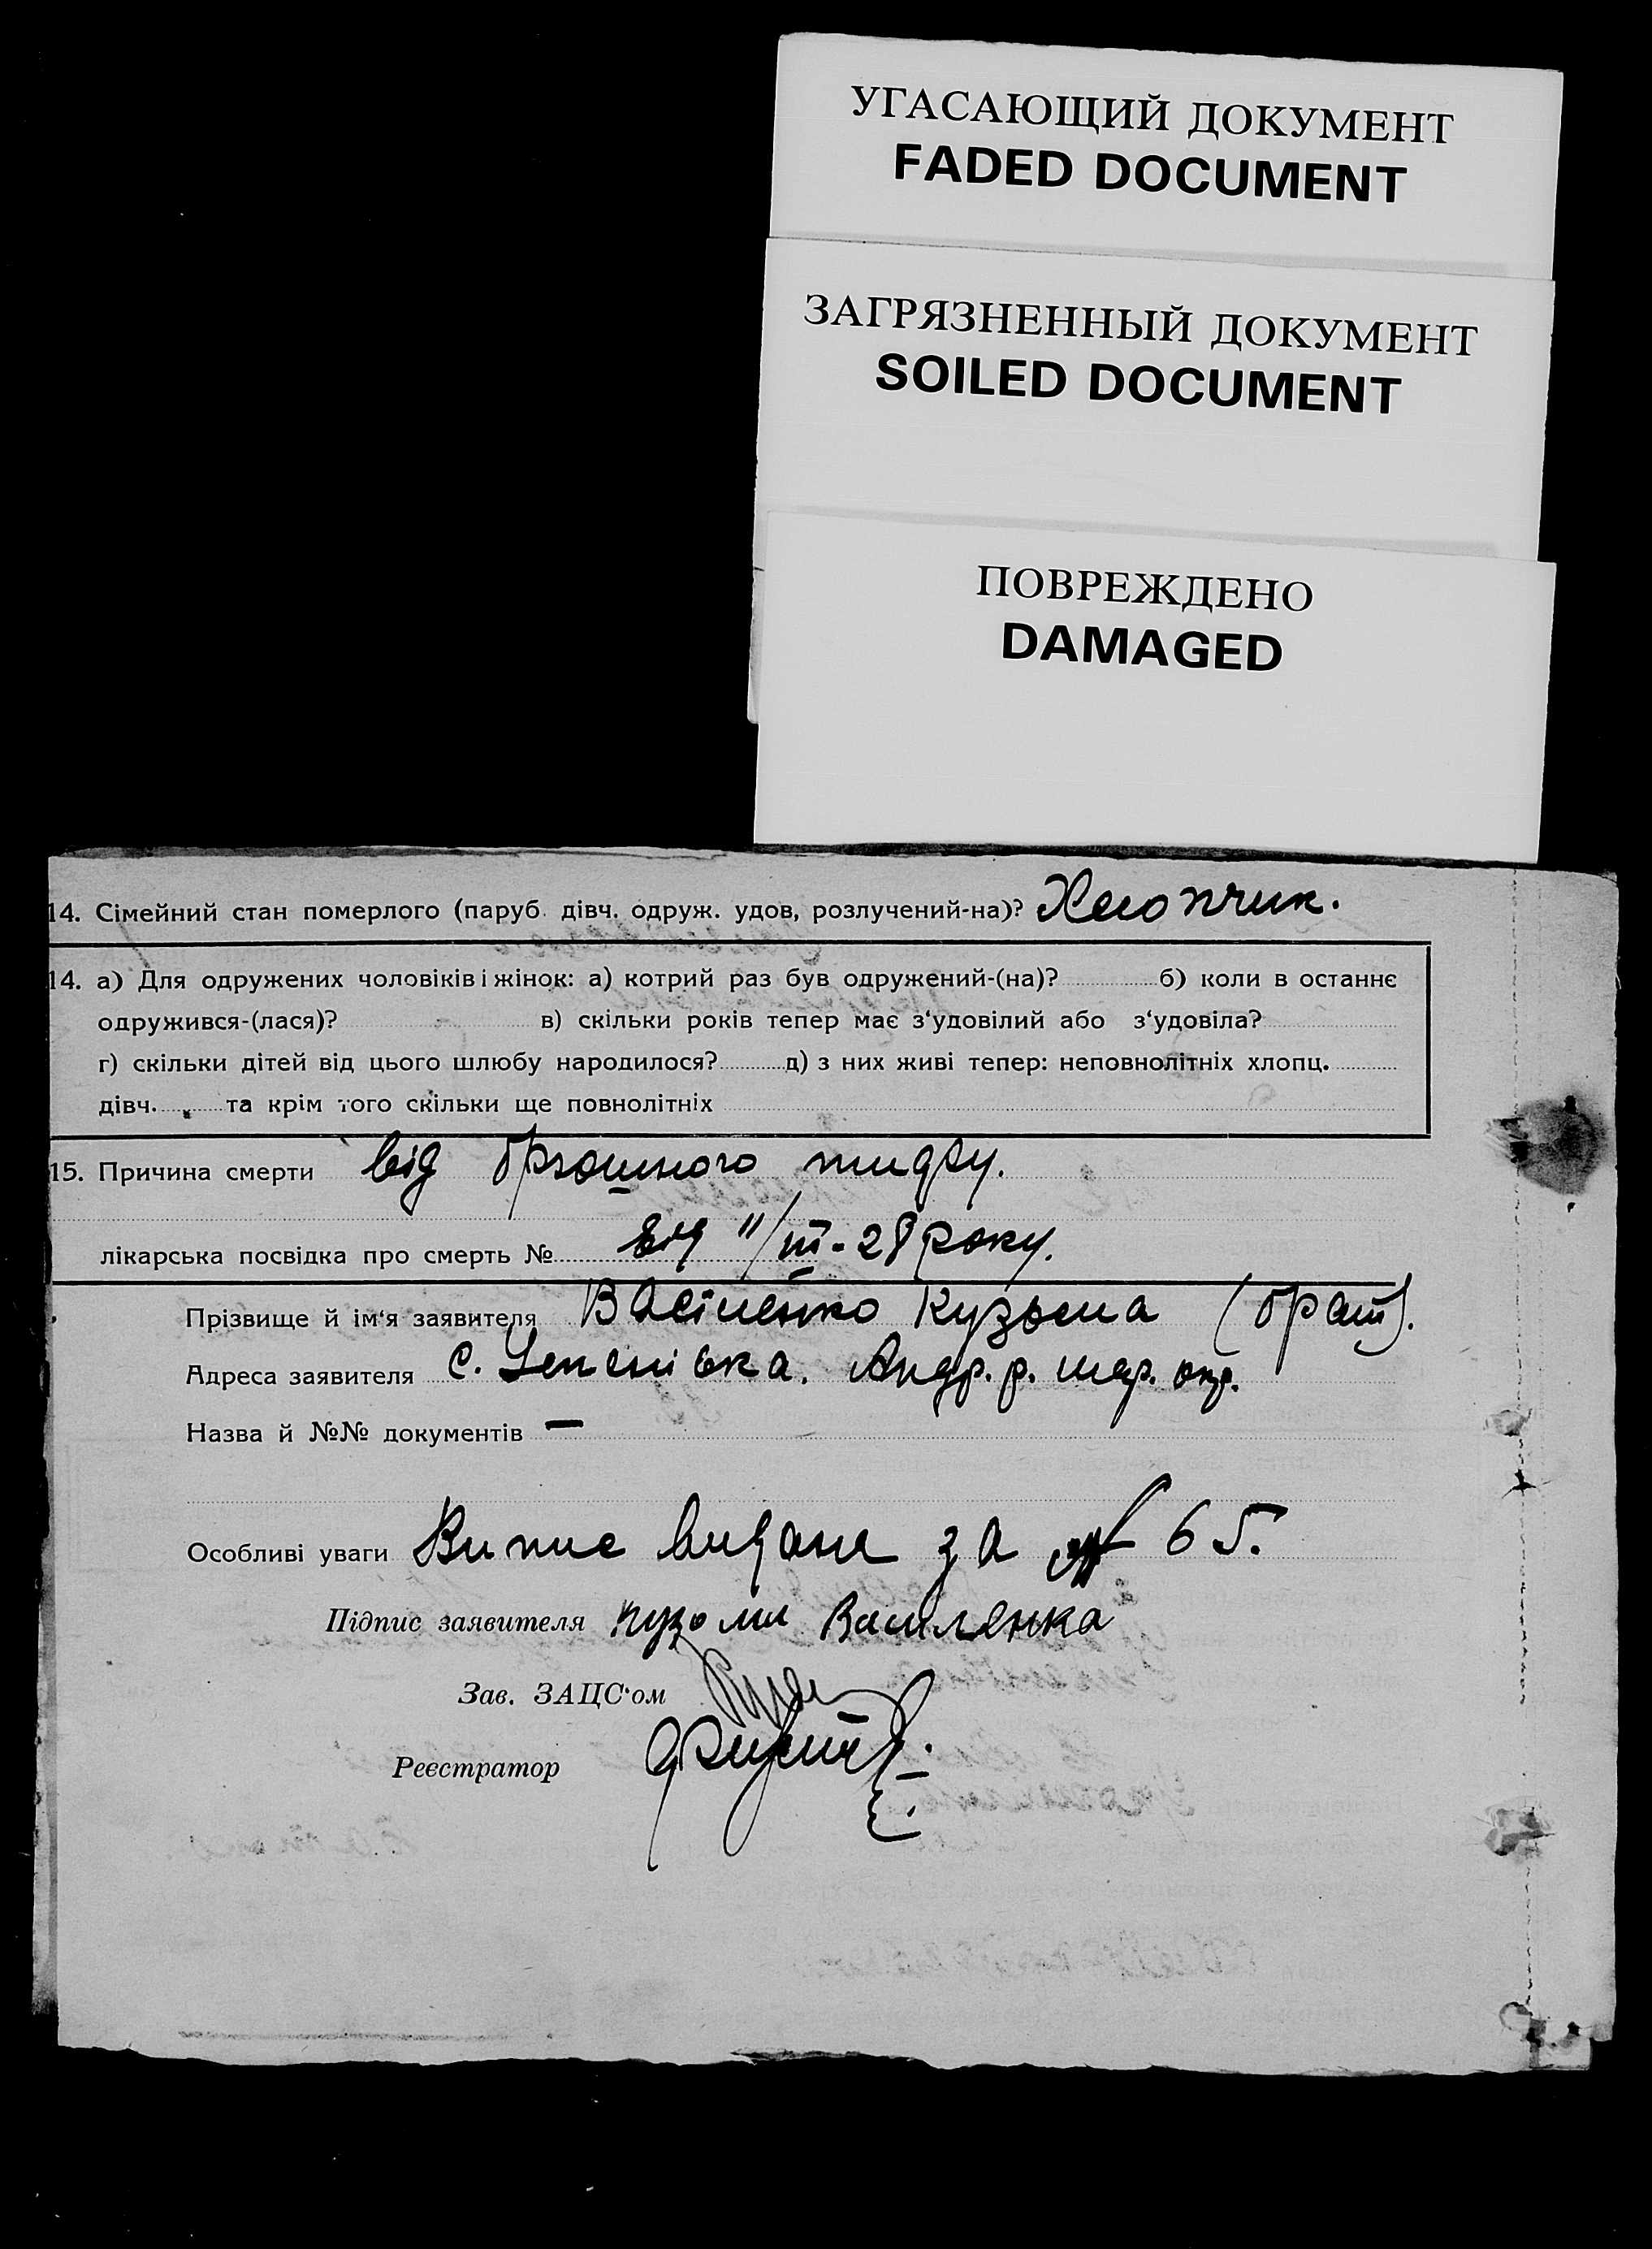 УГАСАЮЩИЙ ДОКУМЕНТ
FADED DOCUMENT
ЗАГРЯЗНЕННЫЙ ДОКУМЕНТ
SOILED DOCUMENT
ПОВРЕЖДЕНО
DAMAGED
14. Сімейний стан померлого (паруб. дівч. одруж. удов, розлучений-на)? Хлопчик.
14. а) Для одружених чоловіків і жінок: а) котрий раз був одружений-(на)? б) коли в останнє
одружився-(лася)? в) скільки років тепер має з‘удовілий або з‘удовіла?
г) скільки дітей від цього шлюбу народилося? д) з них живі тепер: неповнолітніх хлопц.
дівч. та крім того скільки ще повнолітніх
15. Причина смерти від брюшного тифу.
лікарська посвідка про смерть № від 11/III-28 року.
Прізвище й ім‘я заявителя Васіленко Кузьма (брат).
Адреса заявителя с. Андр. р. шев. окр.
Назва й №№ документів —
Особливі уваги Випис видана за № 65.
Підпис заявителя Кузоми Василенка
Зав. ЗАЦС‘ом
Реєстратор